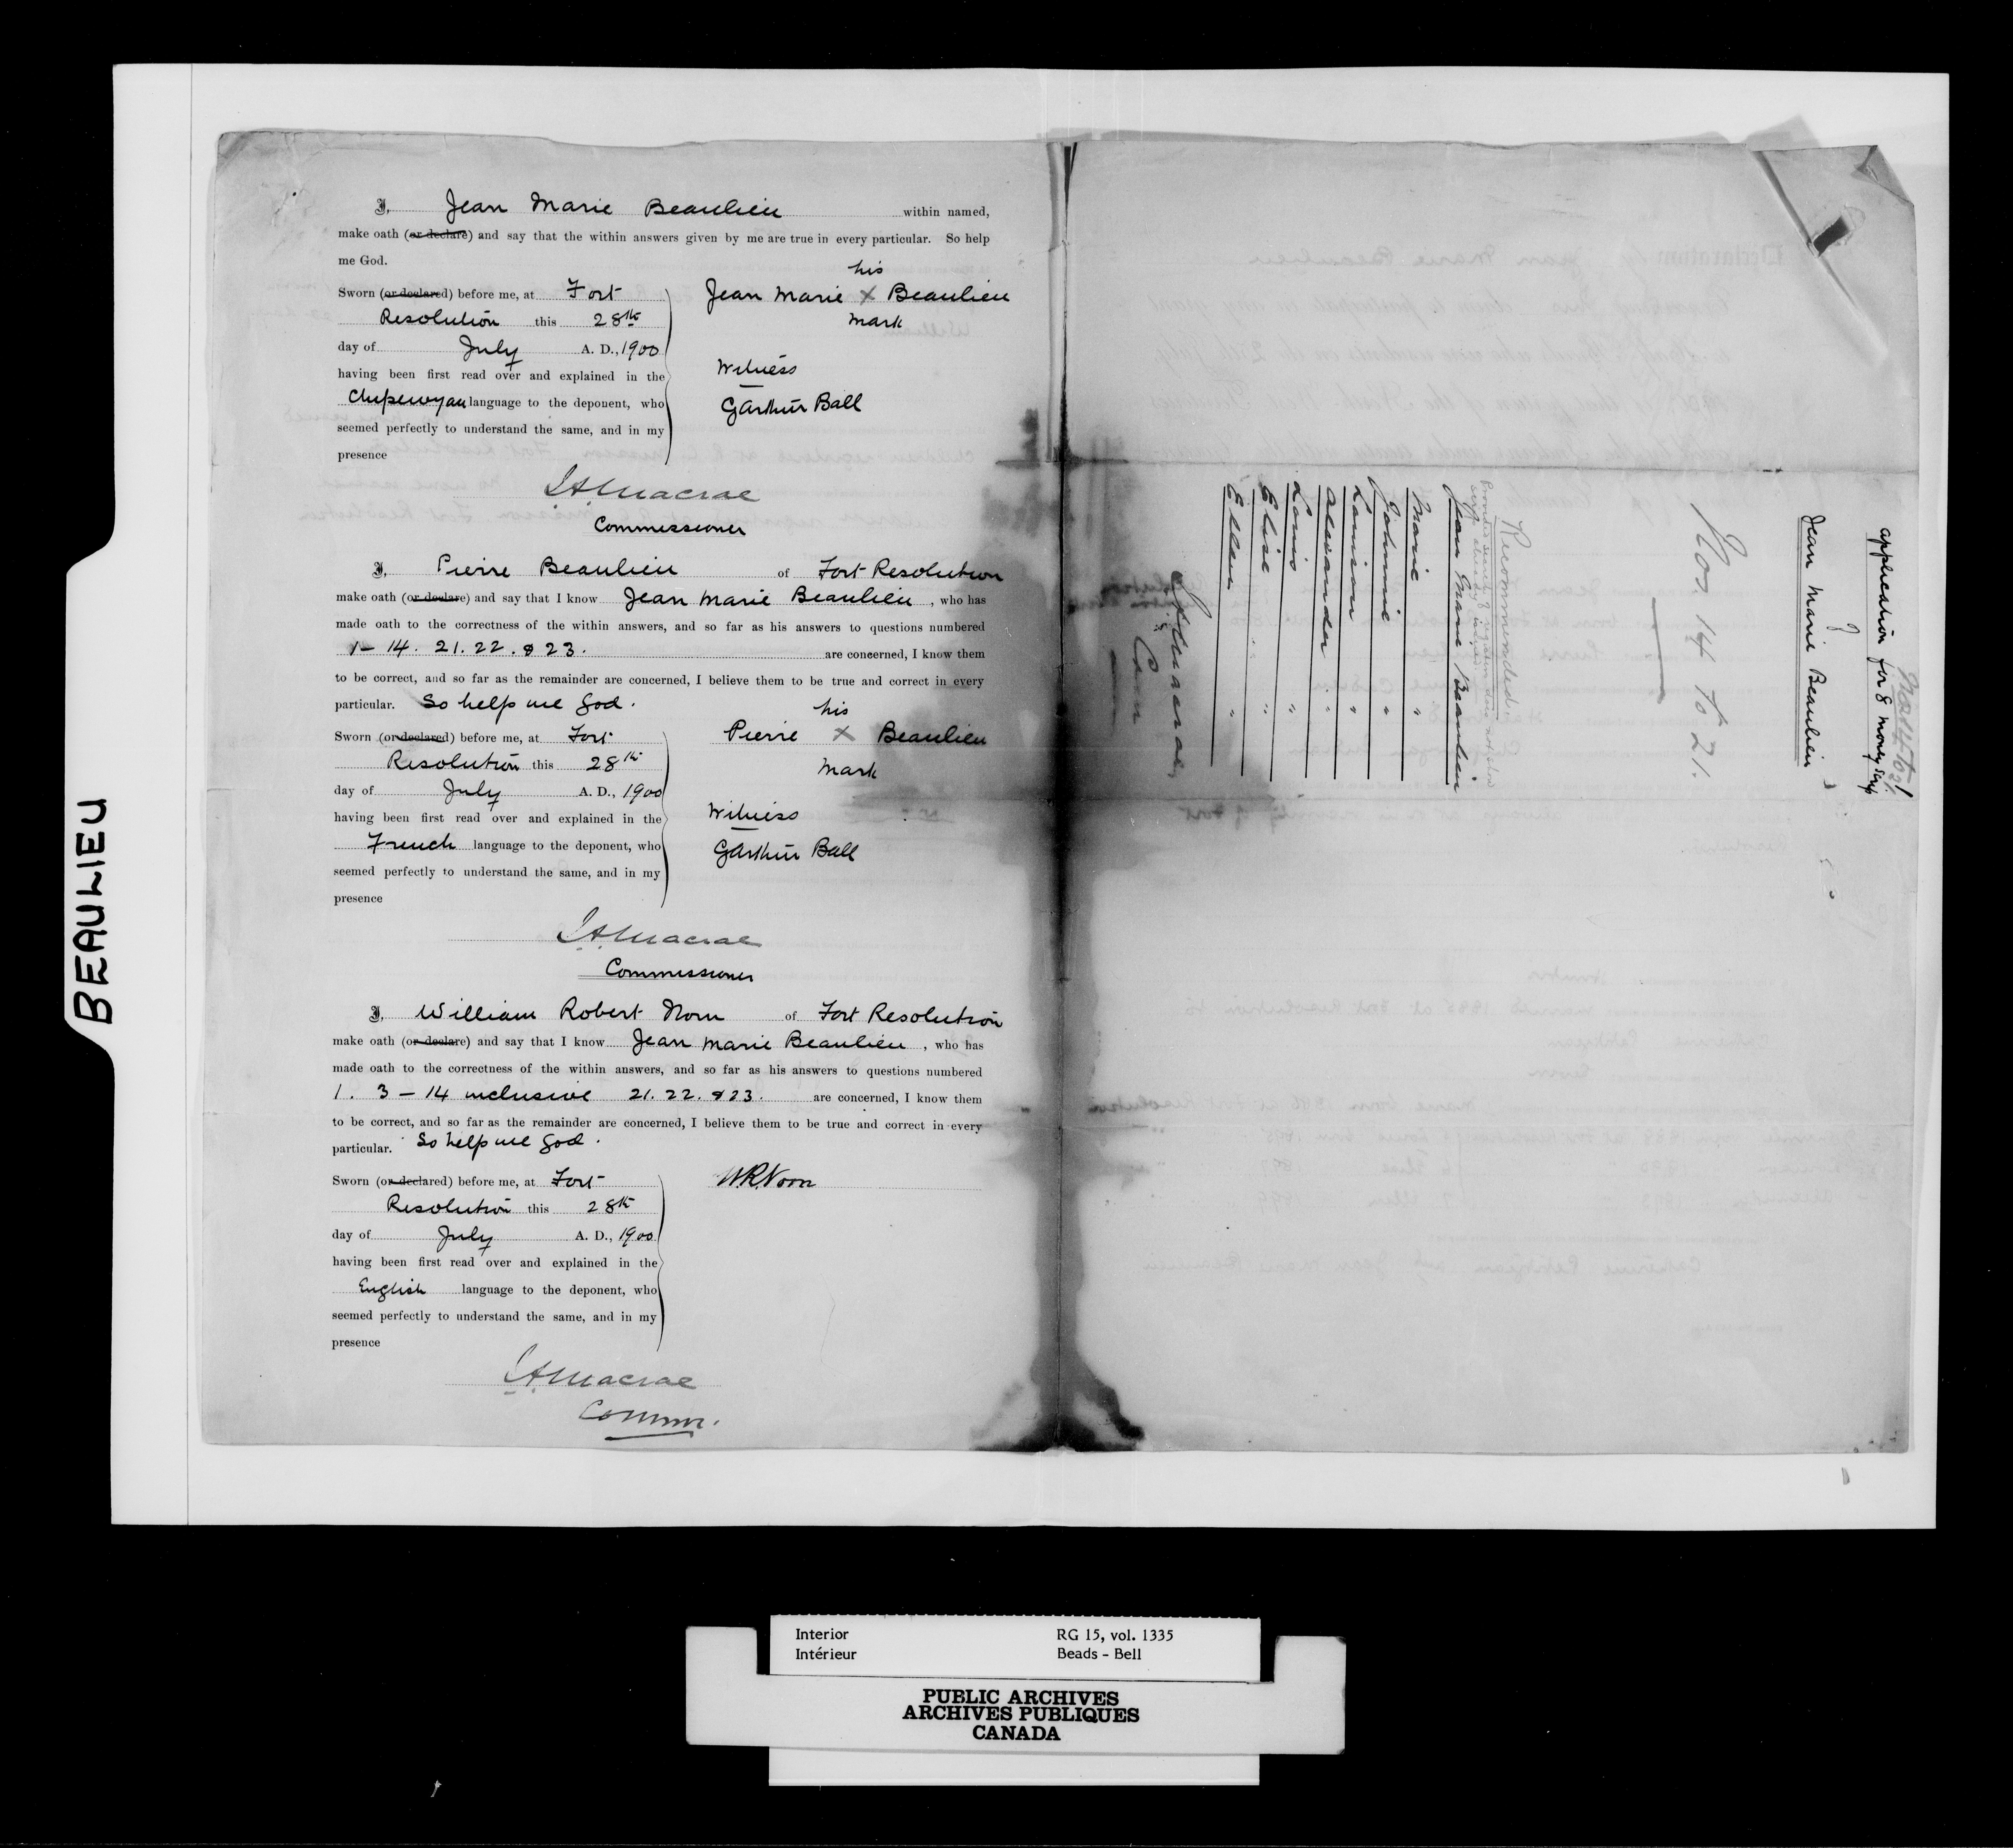 BEAULIEU
I, Jean Marie Beaulieu within named,
make oath (or declare) and say that the within answers given by me are true in every particular. So help
me God.
Sworn (or declared) before me, at Fort
Resolution this 28th
day of July A. D., 1900
having been first read over and explained in the
Chipewyan language to the deponent, who
seemed perfectly to understand the same, and in my
presence
his
Jean Marie X Beaulieu
mark
Witness
G Arthur Ball
J A Macrae
Commissioner
I, Pierre Beaulieu of Fort Resolution
make oath (or declare) and say that I know Jean Marie Beaulieu, who has
made oath to the correctness of the within answers, and so far as his answers to questions numbered
1 - 14. 21. 22. & 23. are concerned, I know them
to be correct, and so far as the remainder are concerned, I believe them to be true and correct in every
particular. So help me God.
Sworn (or declared) before me, at Fort
Resolution this 28th
day of July A. D., 1900
having been first read over and explained in the
French language to the deponent, who
seemed perfectly to understand the same, and in my
presence
his
Pierre X Beaulieu
mark
Witness
G Arthur Ball
J A Macrae
Commissioner
I, William Robert Norn of Fort Resolution
make oath (or declare) and say that I know Jean Marie Beaulieu, who has
made oath to the correctness of the within answers, and so far as his answers to questions numbered
1. 3 - 14 inclusive 21. 22. & 23. are concerned, I know them
to be correct, and so far as the remainder are concerned, I believe them to be true and correct in every
particular. So help me God.
Sworn (or declared) before me, at Fort
Resolution this 28th
day of July A. D., 1900
having been first read over and explained in the
English language to the deponent, who
seemed perfectly to understand the same, and in my
presence
W.R. Norn
J A Macrae
Commr.
application for 8 money scrip
of
Jean Marie Beaulieu
Nos 14 to 21.
Recommended
Jean Marie Beaulieu
Marie "
Johnnie "
Lamison "
Alexander "
Louis "
Elise "
Ellen "
J A Macrae
Com
Interior
Intérieur
RG 15, vol. 1335
Beads - Bell
PUBLIC ARCHIVES
ARCHIVES PUBLIQUES
CANADA